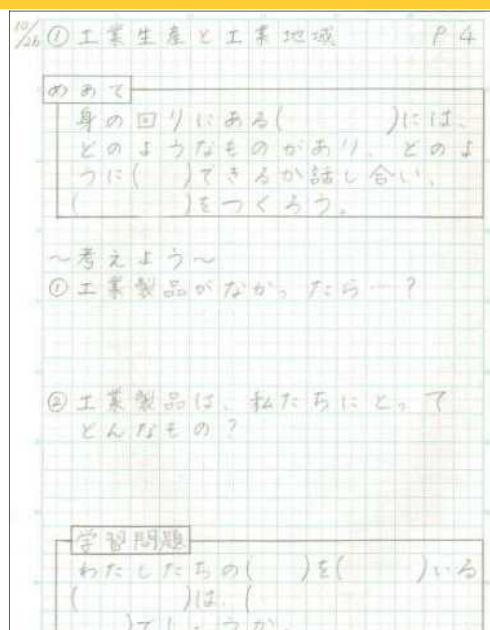 10/26 ① 工業生産と工業地域 P4
めあて
身の回りにある(　　　　)には、
どのようなものがあり、どのよ
うに(　　)できるか話し合い、
(　　　　)をつくろう。
〜考えよう〜
① 工業製品がなかったら…?
② 工業製品は、私たちにとって
どんなもの?
学習問題
わたしたちの(　　)を(　　　)いる
(　　　　)は、(
　　)でしょうか。